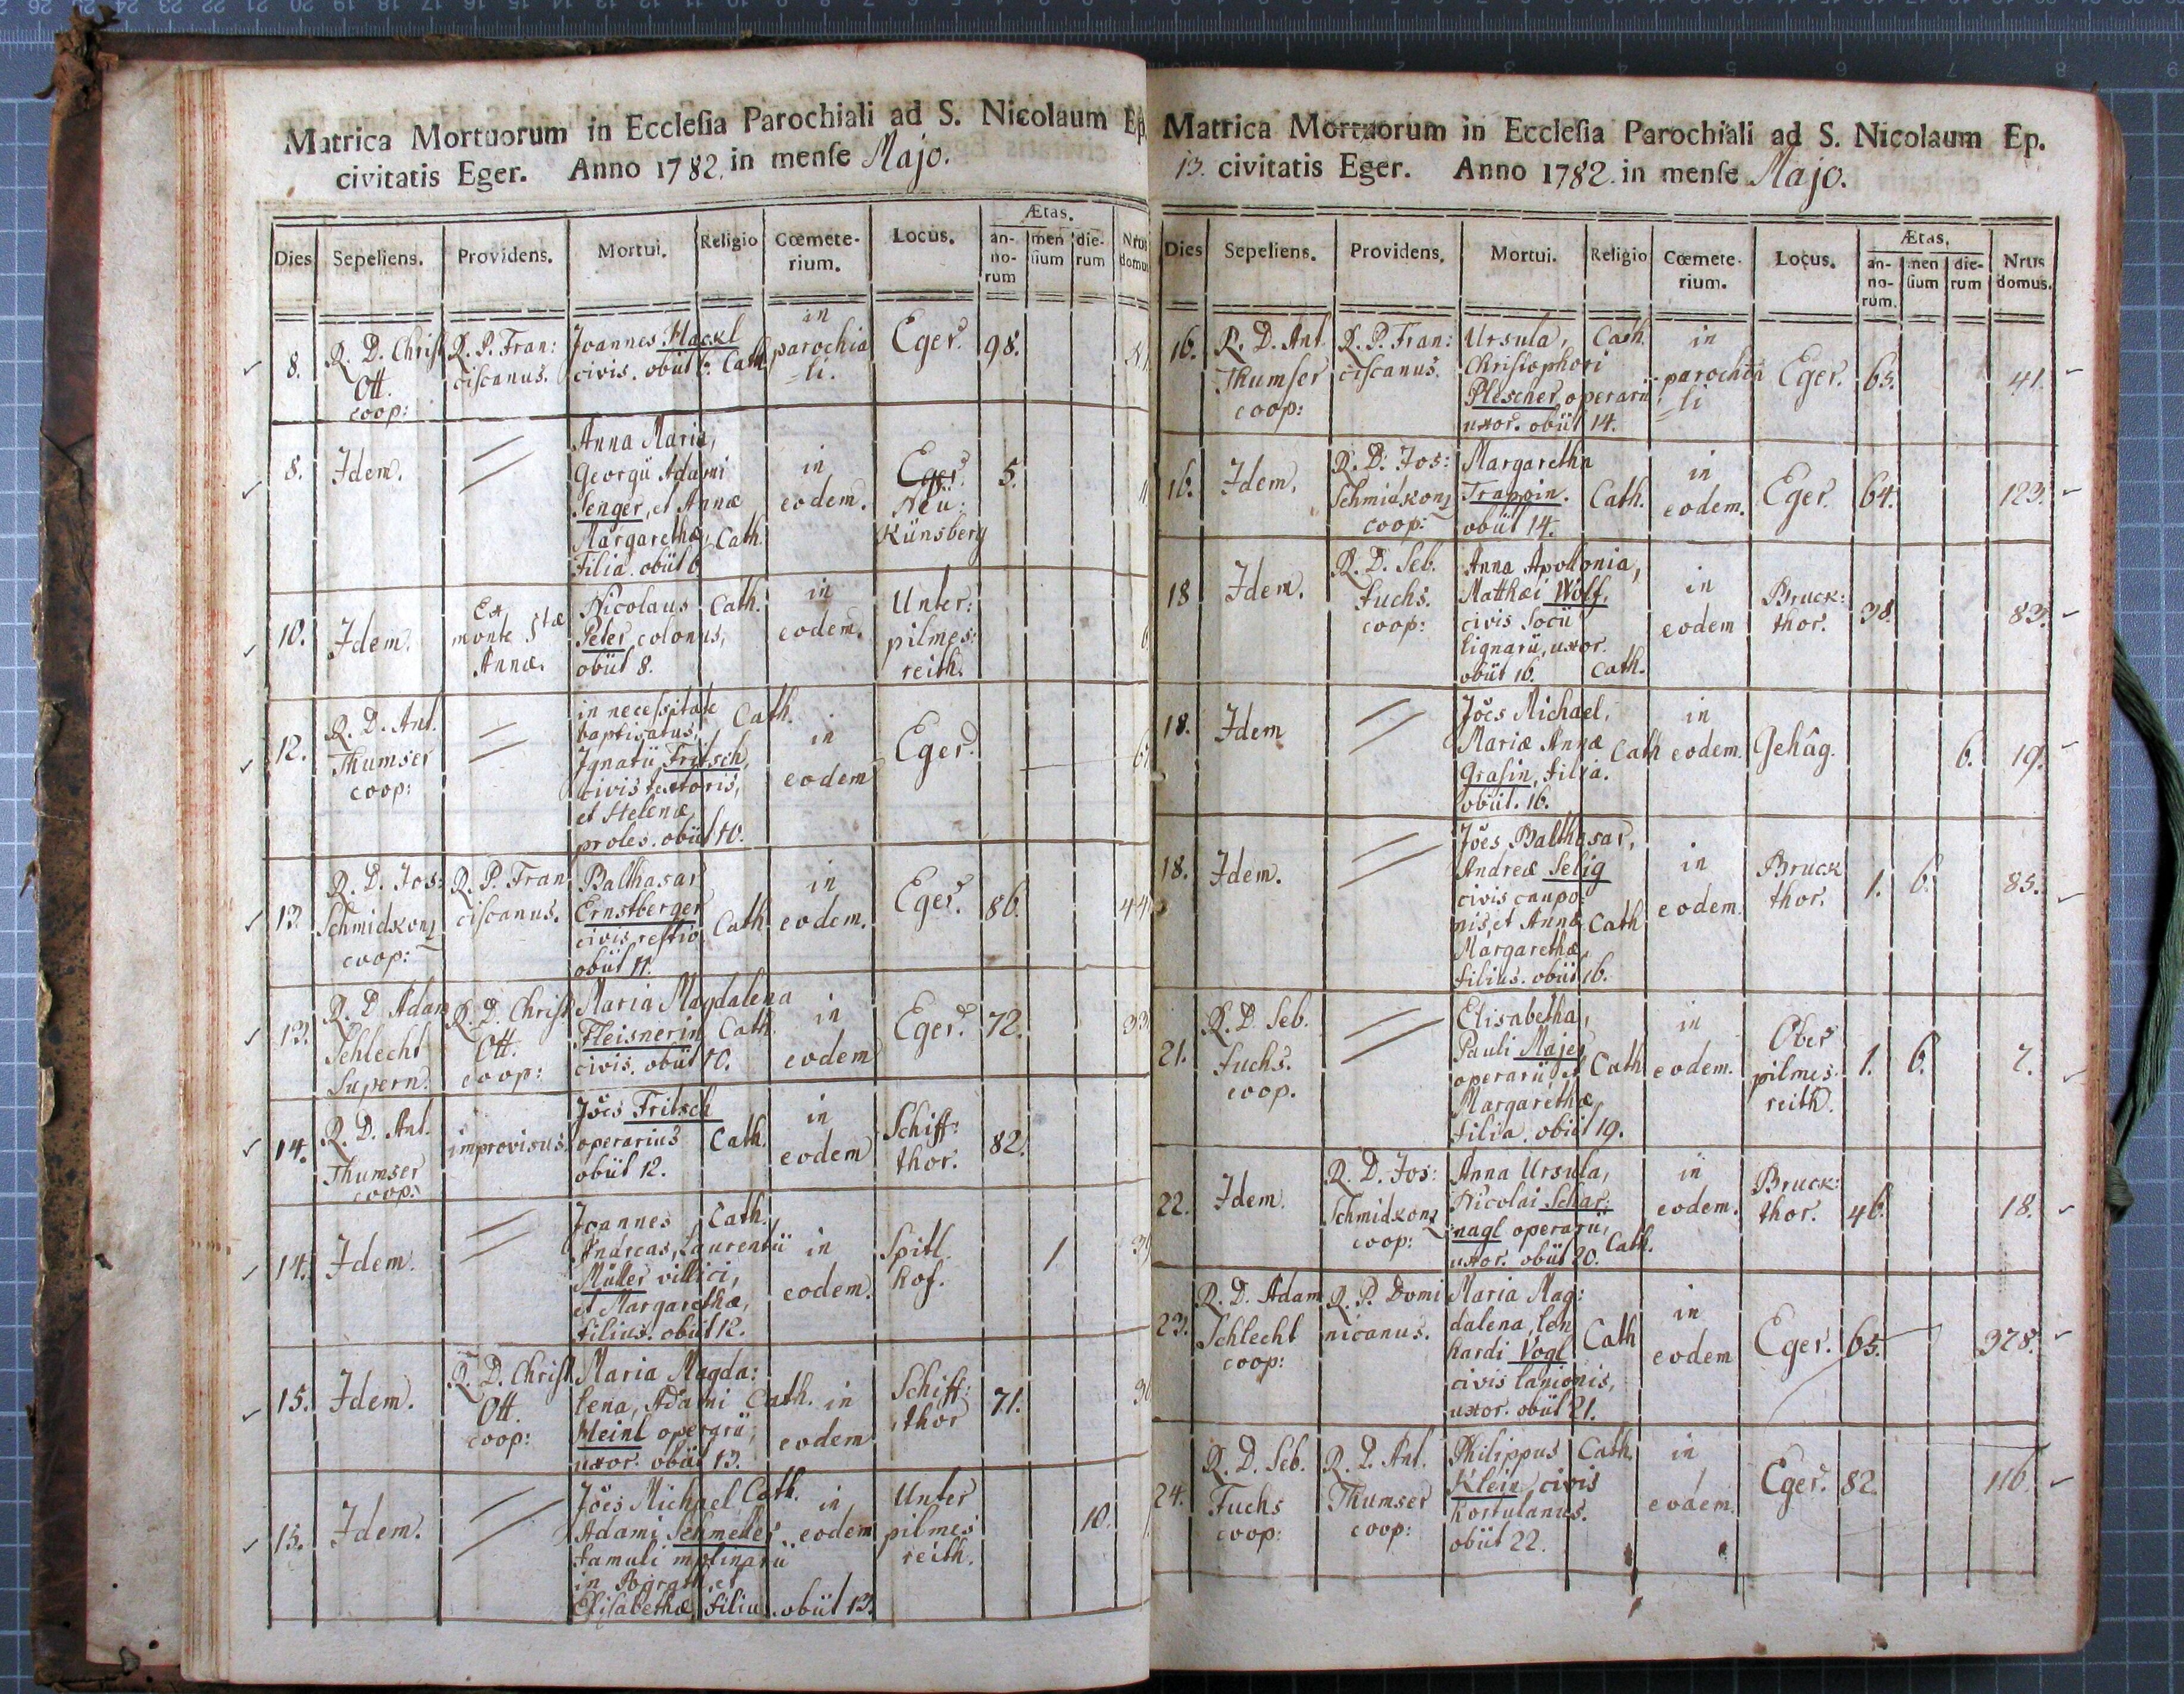 Matrica Mortuorum in Ecclesia Parochiali ad S. Nicolaum Ep.
civitatis Eger. Anno 1782. in mense Majo.
Ætas.
Dies Sepeliens. Providens. Mortui. Religio Cœmete- Locus. an- men die- Nrus
rium. no- sium rum domus
rum
8. R. D. Christ R. P. Fran: Joannes Hackl in Eger. 98.
Ott. ciscanus. civis. obiit 6. Cath. parochia
coop: =li.
8. Idem. Anna Maria, in Eger. 5.
Georgii Adami eodem. Neü:
Senger, et Annæ Künsberg
Margarethæ, Cath.
Filia. obiit 6
10. Idem. Ex Nicolaus Cath. in Unter:
monte Stæ Peter, colonus, eodem. pilmes:
Annæ. obiit 8. reith.
12. R. D. Ant. in necessitate Cath. in Eger.
Thumser baptisatus, eodem
coop: Ignatii Fritsch,
civis textoris,
et Helenæ
proles. obiit 10.
13. R. D. Jos: R. P. Fran Balthasar in Eger. 86. 44
Schmidkonz ciscanus. Ernstberger Cath. eodem.
coop: civis restio
obiit 11.
13. R. D. Adam R. D. Christ Maria Magdalena in Eger. 72. 33
Schlecht Ott. Fleisnerin Cath. eodem
Supern. coop: civis. obiit 10.
14. R. D. Ant. improvisus. Jões Fritsch in Schift: 82.
Thumser operarius Cath. eodem thor.
coop: obiit 12.
14. Idem. Joannes Cath. in Spitl. 1
Andreas, Laurentii eodem. hof.
Müller villici,
et Margarethæ,
filius. obiit 12.
15. Idem. R. D. Christ Maria Magda: Cath. in Schift: 71.
Ott. lena, Adami eodem thor
coop: Heinl operarii,
uxor. obiit 13.
15. Idem. Jões Michael Cath. in Unter 10.
Adami Schmeller eodem pilmes
famuli molinarii reith.
in et
Elisabethæ, filius. obiit 13.
Matrica Mortuorum in Ecclesia Parochiali ad S. Nicolaum Ep.
13. civitatis Eger. Anno 1782. in mense Majo.
Ætas.
Dies Sepeliens. Providens. Mortui. Religio Cœmete- Locus. an- men die- Nrus
rium. no- sium rum domus.
rum.
16. R. D. Ant. R. P. Fran: Ursula, Cath. in Eger. 65. 41.
Thumser ciscanus. Christophori parochia
coop: Plescher, operarii =li
uxor. obiit 14.
16. Idem. R. D. Jos: Margaretha Cath. in Eger. 64. 123.
Schmidkonz Trappin. eodem.
coop: obiit 14.
18 Idem. R. D. Seb. Anna Apollonia, in Bruck: 38. 83.
Fuchs. Matthæi Wolf, eodem thor.
coop: civis Socii
lignarii, uxor.
obiit 16. Cath.
18. Idem Jões Michael, in Gehåg. 6. 19.
Mariæ Annæ Cath eodem.
Grasin, filia.
obiit. 16.
18. Idem. Jões Balthasar, in Bruck 1. 6. 85.
Andreæ Selig eodem. thor.
civis caupo=
nis, et Annæ Cath
Margarethæ,
filius. obiit 16.
21. R. D. Seb. Elisabetha, in Ober 1. 6. 2.
Fuchs. Pauli Majer Cath eodem. pilmes.
coop. operarii et reith.
Margarethæ,
filia. obiit 19.
22. Idem. R. D. Jos: Anna Ursula, in Bruck: 46. 18.
Schmidkonz Nicolai Schar: eodem. thor.
coop: nagl operarii,
uxor. obiit 20. Cath.
23. R. D. Adam R. P. Domi Maria Mag: in Eger. 65. 328.
Schlecht nicanus. dalena, Len Cath eodem
coop: hardi Vogl
civis lanionis,
uxor. obiit 21.
24. R. D. Seb. R. D. Ant. Philippus Cath. in Eger. 82. 116.
Fuchs Thumser Klein, civis eodem.
coop: coop: hortulanus.
obiit 22.